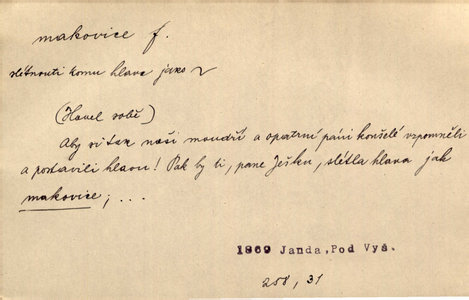 makovice f.
slétnouti komu hlava jako ~
(Havel sobě)
Aby si tak naši moudří a opatrní páni konšelé vzpomněli
a postavili hlavu! Pak by ti, pane Ješku, slétla hlava jak
makovice; ...
1869 Janda, Pod Vyš.
258, 31